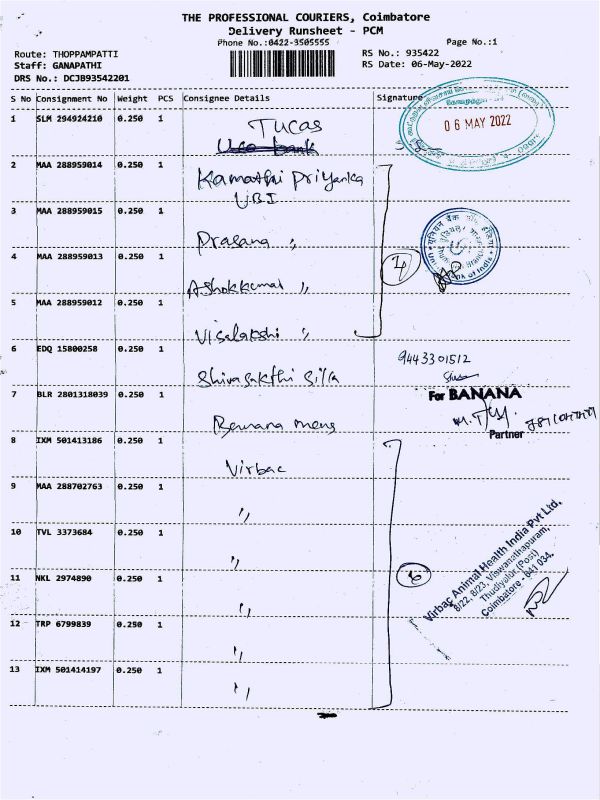 THE PROFESSIONAL COURIERS, Coimbatore
Delivery Runsheet - PCM
Phone No.:0422-3505555
Page No.:1
Route: THOPPAMPATTI
RS No.: 935422
Staff: GANAPATHI
RS Date: 06-May-2022
DRS No.: DCJB93542201
S No Consignment No Weight PCS Consignee Details Signature
06 MAY 2022
1 SLM 294924210 0.250 1 Tucas
Uco bank
2 MAA 288959014 0.250 1 Kamathi Priyanka
UBI
3 MAA 288959015 0.250 1
Prasana "
4 MAA 288959013 0.250 1
4
Ashokkumar "
5 MAA 288959012 0.250 1
Visalakshi "
6 EDQ 15800258 0.250 1
9443301512
Shivasakthi
7 BLR 2801318039 0.250 1
For BANANA
Banana mens
Partner
8 IXM 501413186 0.250 1
Virbac
9 MAA 288702763 0.250 1
"
10 TVL 3373684 0.250 1
"
11 NKL 2974890 0.250 1
6
"
Virbac Animal Health India Pvt Ltd.
8/22, 8/23, Viswanathapuram,
Thudiyalur (Post)
Coimbatore - 641 034.
12 TRP 6799839 0.250 1
"
13 IXM 501414197 0.250 1
"